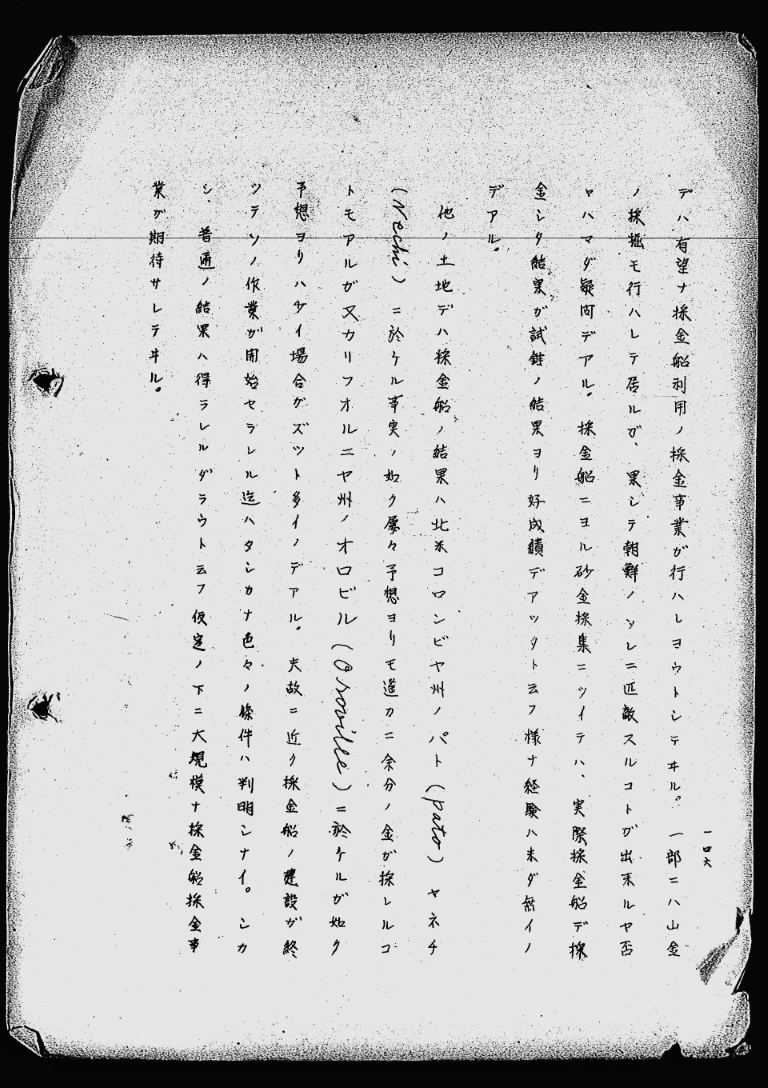 一四六
デハ有望ナ採金船利用ノ採金事業が行ハレヨウトシテヰル。一部ニハ山金
ノ採掘モ行ハレテ居ルガ、果シテ朝鮮ノソレニ匹敵スルコトガ出来ルヤ否
ヤハマダ疑問デアル。採金船ニヨル砂金採集ニツイテハ、実際採金船デ採
金シタ結果ガ試錐ノ結果ヨリ好成績デアツタト云フ様ナ経験ハ未ダ無イノ
デアル。
他ノ土地デハ採金船ノ結果ハ北米コロンビヤ州ノパト(Pato)ヤネチ
(Nechi)ニ於ケル事実ノ如ク屡々予想ヨリモ遥カニ余分ノ金ガ採レルコ
トモアルガ又カリフオルニヤ州ノオロビル(Oroville)ニ於ケルガ如ク
予想ヨリハ少イ場合ガズツト多イノデアル。夫故ニ近ク採金船ノ建設ガ終
ツテソノ作業ガ開始セラレル迄ハタシカナ色々ノ條件ハ判明シナイ。シカ
シ、普通ノ結果ハ得ラレルダラウト云フ仮定ノ下ニ大規模ナ採金船採金事
業ガ期待サレテヰル。